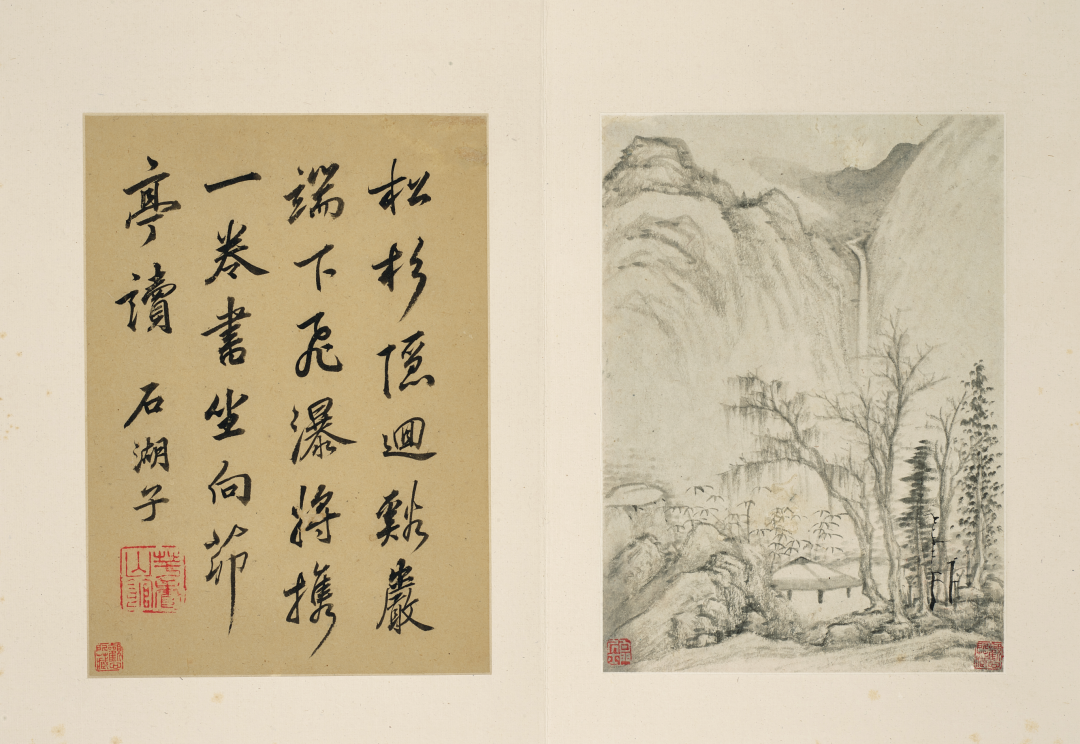 松杉隱迴谿巖
端下飛瀑將攜
一卷書坐向茆
亭讀 石湖子